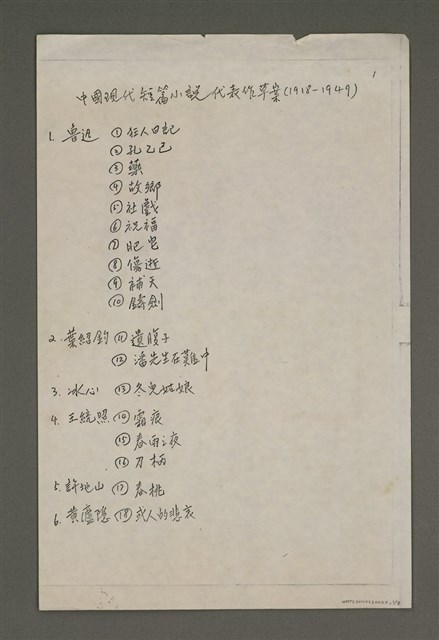 1
中國現代短篇小說代表作草案(1918-1949)
1. 魯迅 ① 狂人日記
② 孔乙己
③ 藥
④ 故鄉
⑤ 社戲
⑥ 祝福
⑦ 肥皂
⑧ 傷逝
⑨ 補天
⑩ 鑄劍
2. 葉紹鈞 ⑪ 遺腹子
⑫ 潘先生在難中
3. 冰心 ⑬ 冬兒姑娘
4. 王統照 ⑭ 霜痕
⑮ 春雨之夜
⑯ 刀柄
5. 許地山 ⑰ 春桃
6. 黃廬隱 ⑱ 或人的悲哀